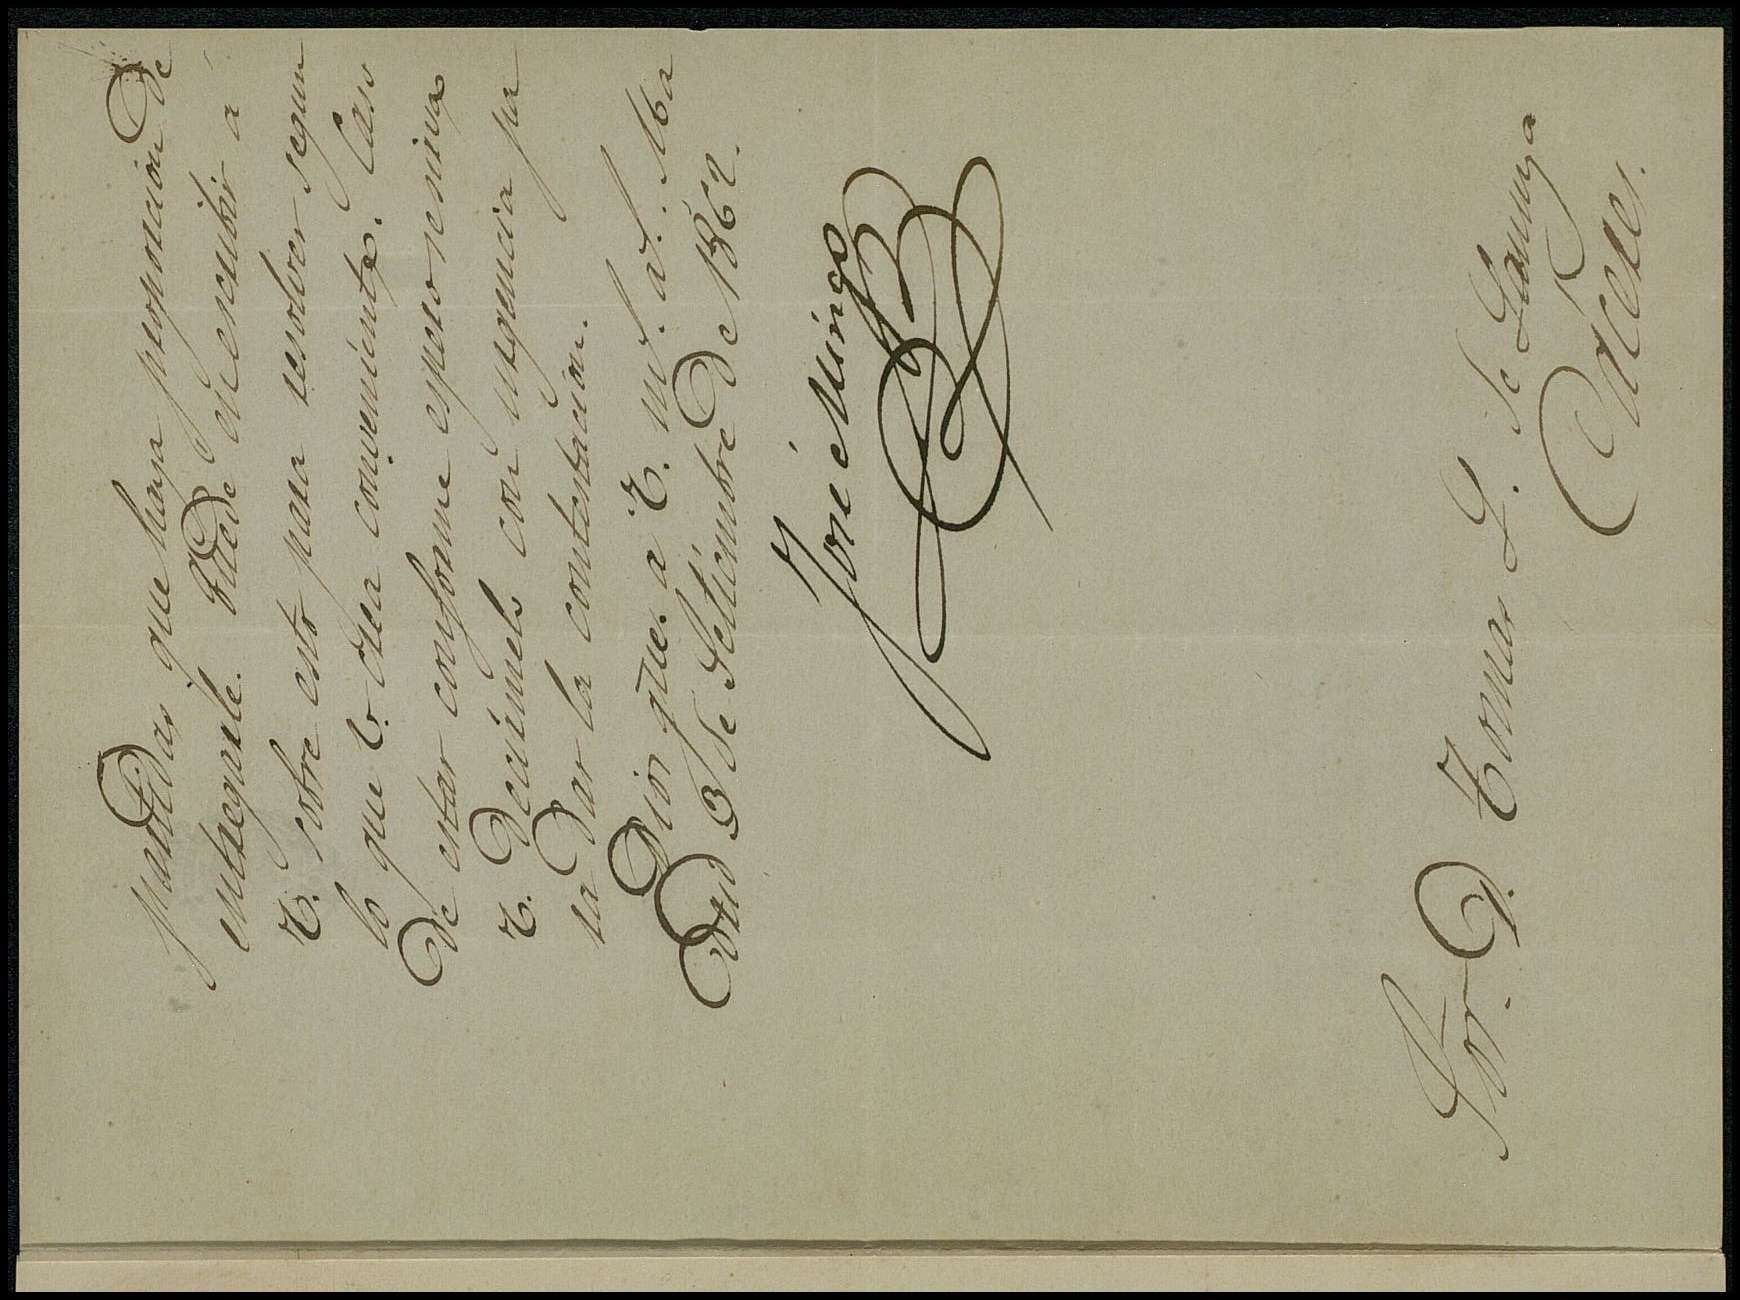 partidas que haya proporcion de
entregarle. Puede V. escribir á
V. sobre esto para resolver segun
lo que V. crea conveniente. Caso
de estar conforme espero se sirva
V. decirmelo con urgencia pa
ra dar la contestacion.
Dios gue. a V. m.s a.s Ma
drid 3 de Setiembre de 1862.
José Mingo
Sor. D. Tomas L. de
Cáceres.